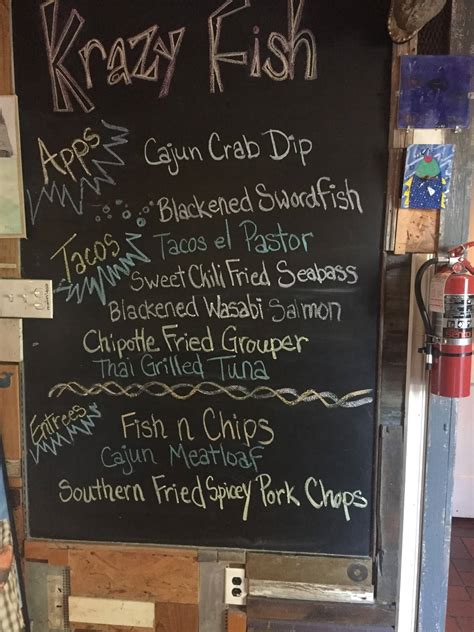 Krazy Fish
Apps
Cajun Crab Dip
Tacos
Blackened Swordfish
Tacos el Pastor
Sweet Chili Fried Seabass
Blackened Wasabi Salmon
Chipotle Fried Grouper
Thai Grilled Tuna
Entrees
Fish n Chips
Cajun Meatloaf
Southern Fried Spicey Pork Chops